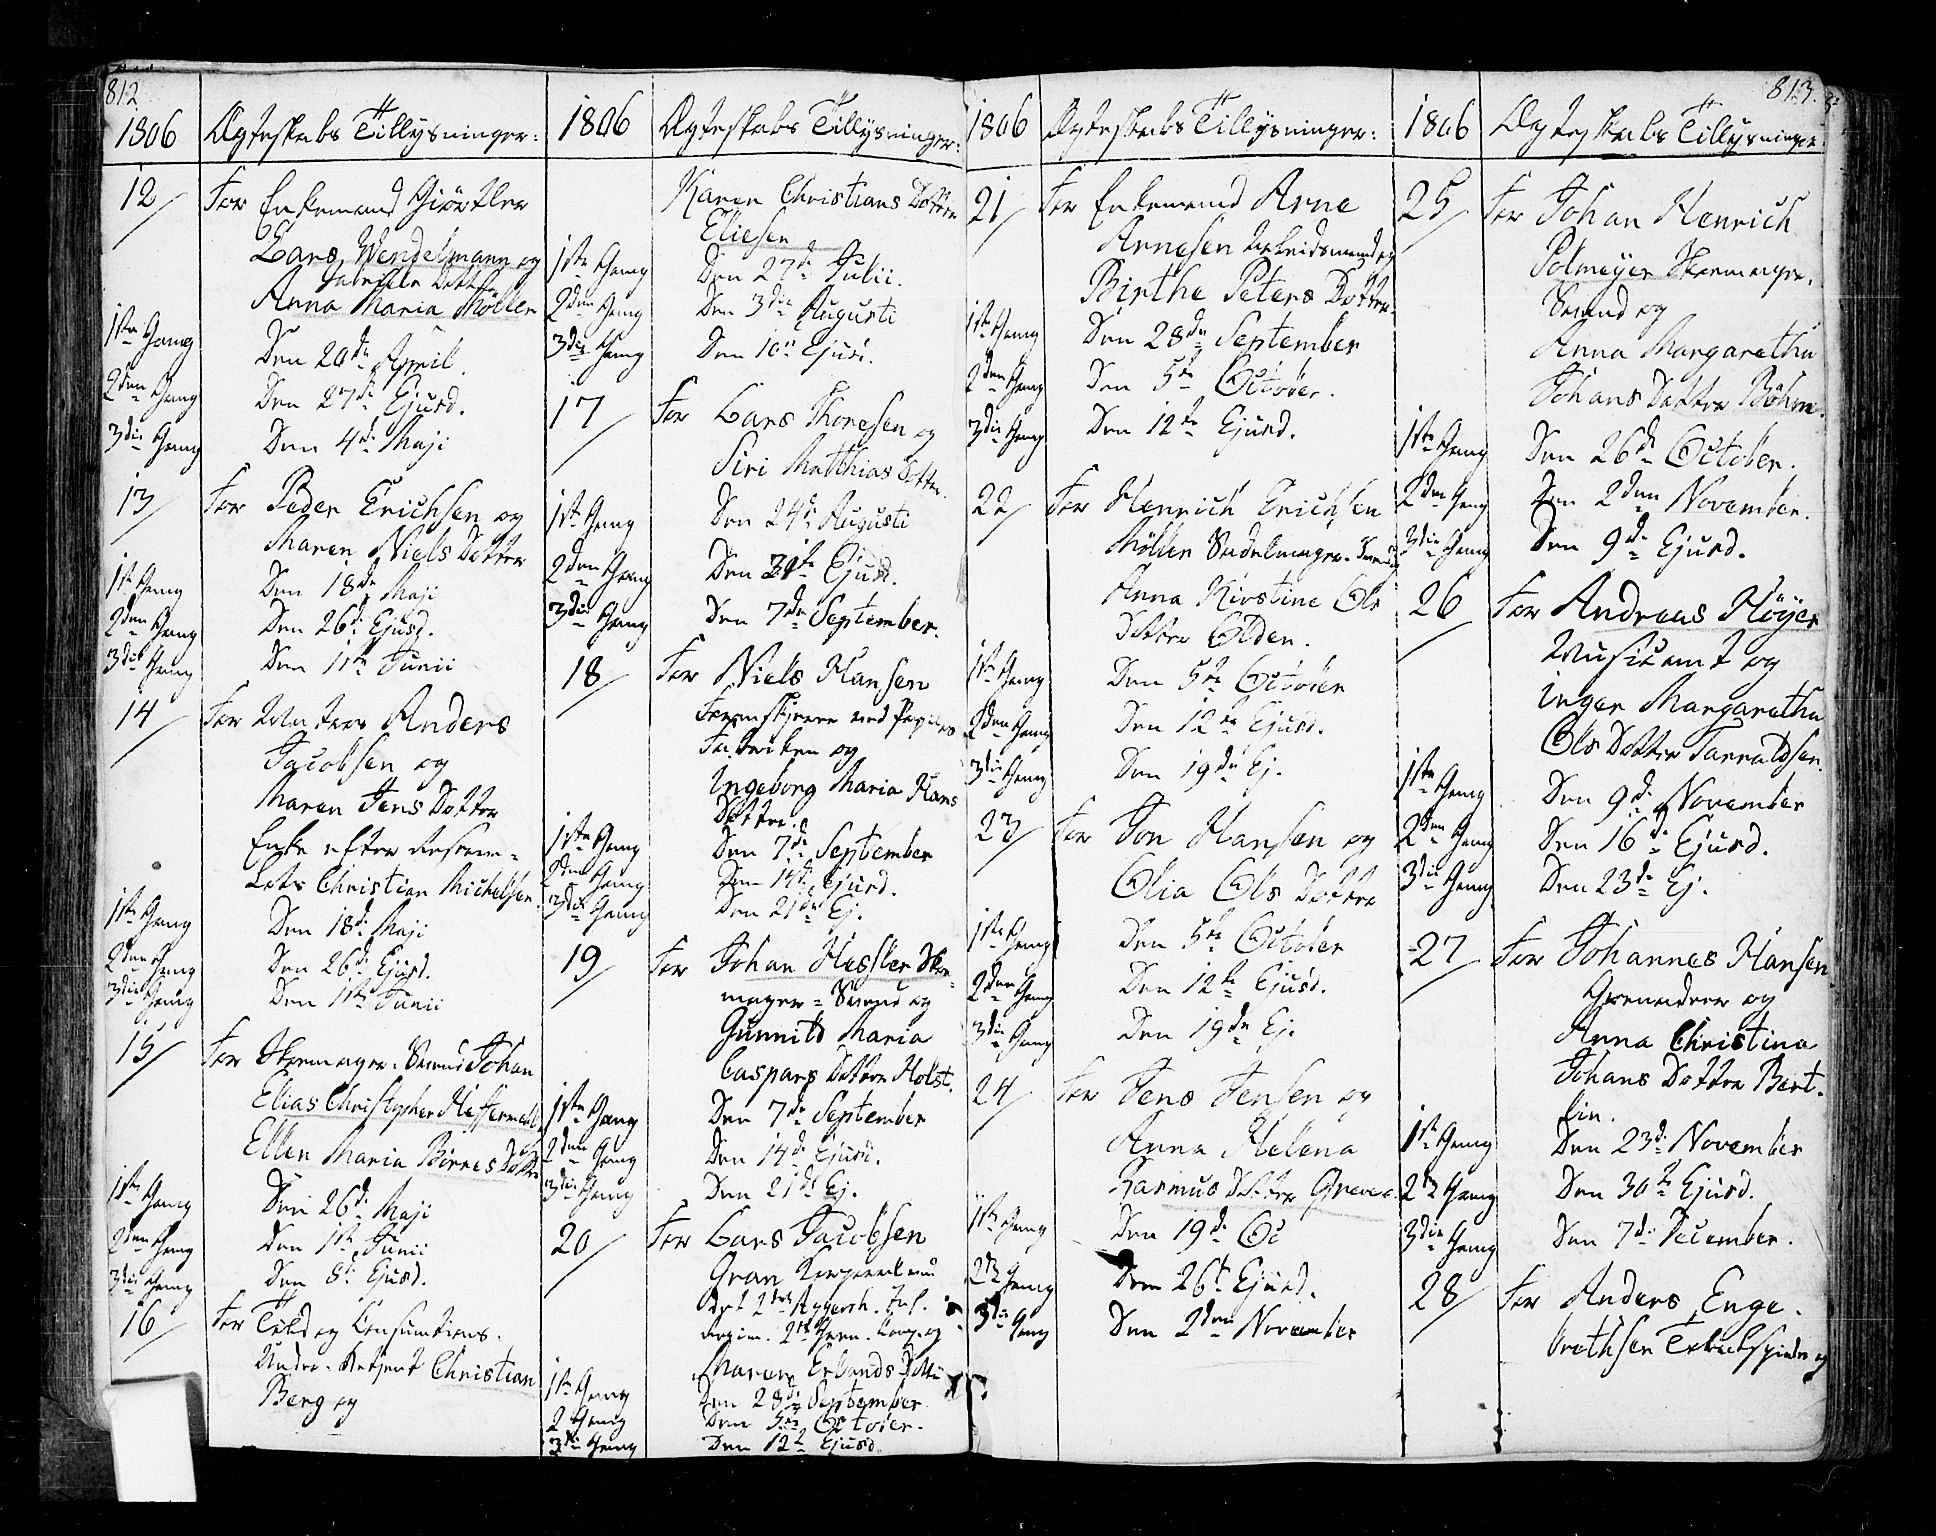 812
1806 Ægteskabs Tillysninger:
12/ For Enkemand Giörtler
Lars Wendelmann og
Gabriels Dotter
Anna Maria Möller
1ste Gang Den 20de April.
2den Gang Den 27de Ejusd.
3die Gang Den 4de Maji
13/ For Peder Erichsen og
Maren Niels Dotter
1ste Gang Den 18de Maji
2den Gang Den 26de Ejusd.
3die Gang Den 1ste Junii
14/ For Anders
Jacobsen og
Maren Jens Dotter
Enke efter
Christian Michelsen.
1ste Gang Den 18de Maji
2den Gang Den 26de Ejusd.
3die Gang Den 1ste Junii
15/ For Skomager-Svend Johan
Elias Christopher
Ellen Maria Börres Dotter
1ste Gang Den 26de Maji
2den Gang Den 1ste Junii
3die Gang Den 8de Ejusd.
16/ For Told og Consumtions-
Under-Betjent Christian
Berg og
1806 Ægteskabs Tillysninger:
Karen Christians Dotter
Eliesen
1ste Gang Den 27de Julii.
2den Gang Den 3die Augusti
3die Gang Den 10de Ejusd.
17/ For Lars Thoresen og
Siri Matthias Dotter.
1ste Gang Den 24de Augusti
2den Gang Den 31te Ejusd.
3die Gang Den 7de September.
18/ For Niels Hansen
ved Papiir
Fabriken og
Ingeborg Maria Hans
Dotter.
1ste Gang Den 7de September
2den Gang Den 14de Ejusd.
3die Gang Den 21de Ej.
19/ For Johan Hessler Sko-
mager-Svend og
Gunnild Maria
Caspars Dotter Holst.
1ste Gang Den 7de September
2den Gang Den 14de Ejusd.
3die Gang Den 21de Ej.
20/ For Lars Jacobsen
Gran
det 2det Aggersh. Inf.
Regim. 2det Gren. Comp. og
Maren Erlands Dotter
1ste Gang Den 28de September
2 Gang Den 5te October.
3die Gang Den 12te Ejusd.
1806 Ægteskabs Tillysninger:
21/ For Enkemand Arne
Arnesen Arbeidsmand og
Birthe Peters Dotter.
1ste Gang Den 28de September
2den Gang Den 5te October.
3die Gang Den 12te Ejusd.
22/ For Henrich Erichsen
Möller Sadelmager-Svend
Anna Kirstine Ols
Dotter Olden.
1ste Gang Den 5te October
2den Gang Den 12te Ejusd.
3die Gang Den 19de Ej.
23/ For Jon Hansen og
Olia Ols Dotter
1ste Gang Den 5te October
2den Gang Den 12te Ejusd.
3die Gang Den 19de Ej.
24/ For Jens Jensen og
Anna Helena
Rasmus Dotter
1ste Gang Den 19de Oc
2den Gang Den 26te Ejusd.
3die Gang Den 2den November
813.
1806 Ægteskabs Tillysninger.
25/ For Johan Henrich
Polmeyer Skomager-
Svend og
Anna Margaretha
Johans Dotter Böhm.
1ste Gang Den 26de October.
2den Gang Den 2den November.
3die Gang Den 9de Ejusd.
26/ For Andreas Höyer
Musicant og
Inger Margaretha
Ols Dotter Tarraldsen.
1ste Gang Den 9de November
2den Gang Den 16de Ejusd.
3die Gang Den 23de Ej.
27/ For Johannes Hansen
Grenadeer og
Anna Christina
Johans Dotter Bert-
lin.
1ste Gang Den 23de November
2den Gang Den 30te Ejusd.
3die Gang Den 7de December.
28/ For Anders Enge-
brethsen Tobakspinder og